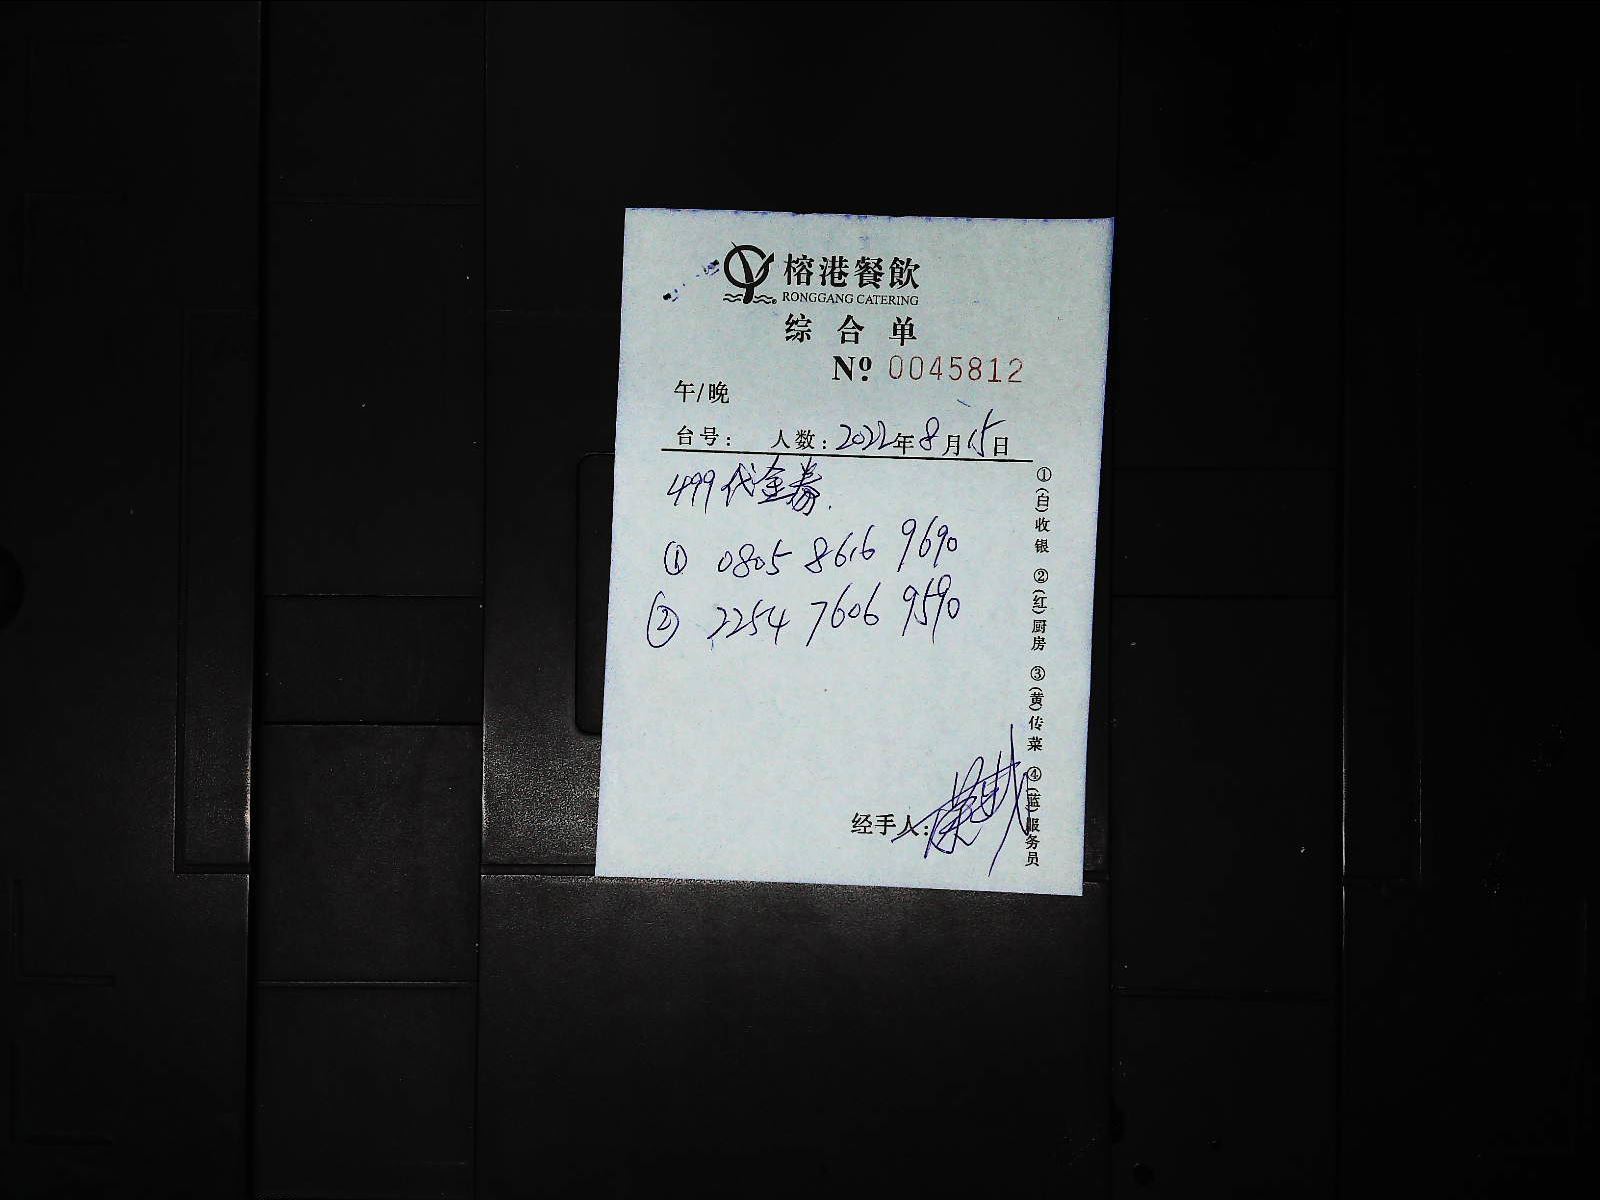 榕港餐飲
RONGGANG CATERING
综合单
Nº 0045812
午/晚
台号: 人数: 2022年8月15日
499代金券.
① 0805 8616 9690
② 2254 7606 9590
经手人:
①(白)收银 ②(红)厨房 ③(黄)传菜 ④(蓝)服务员